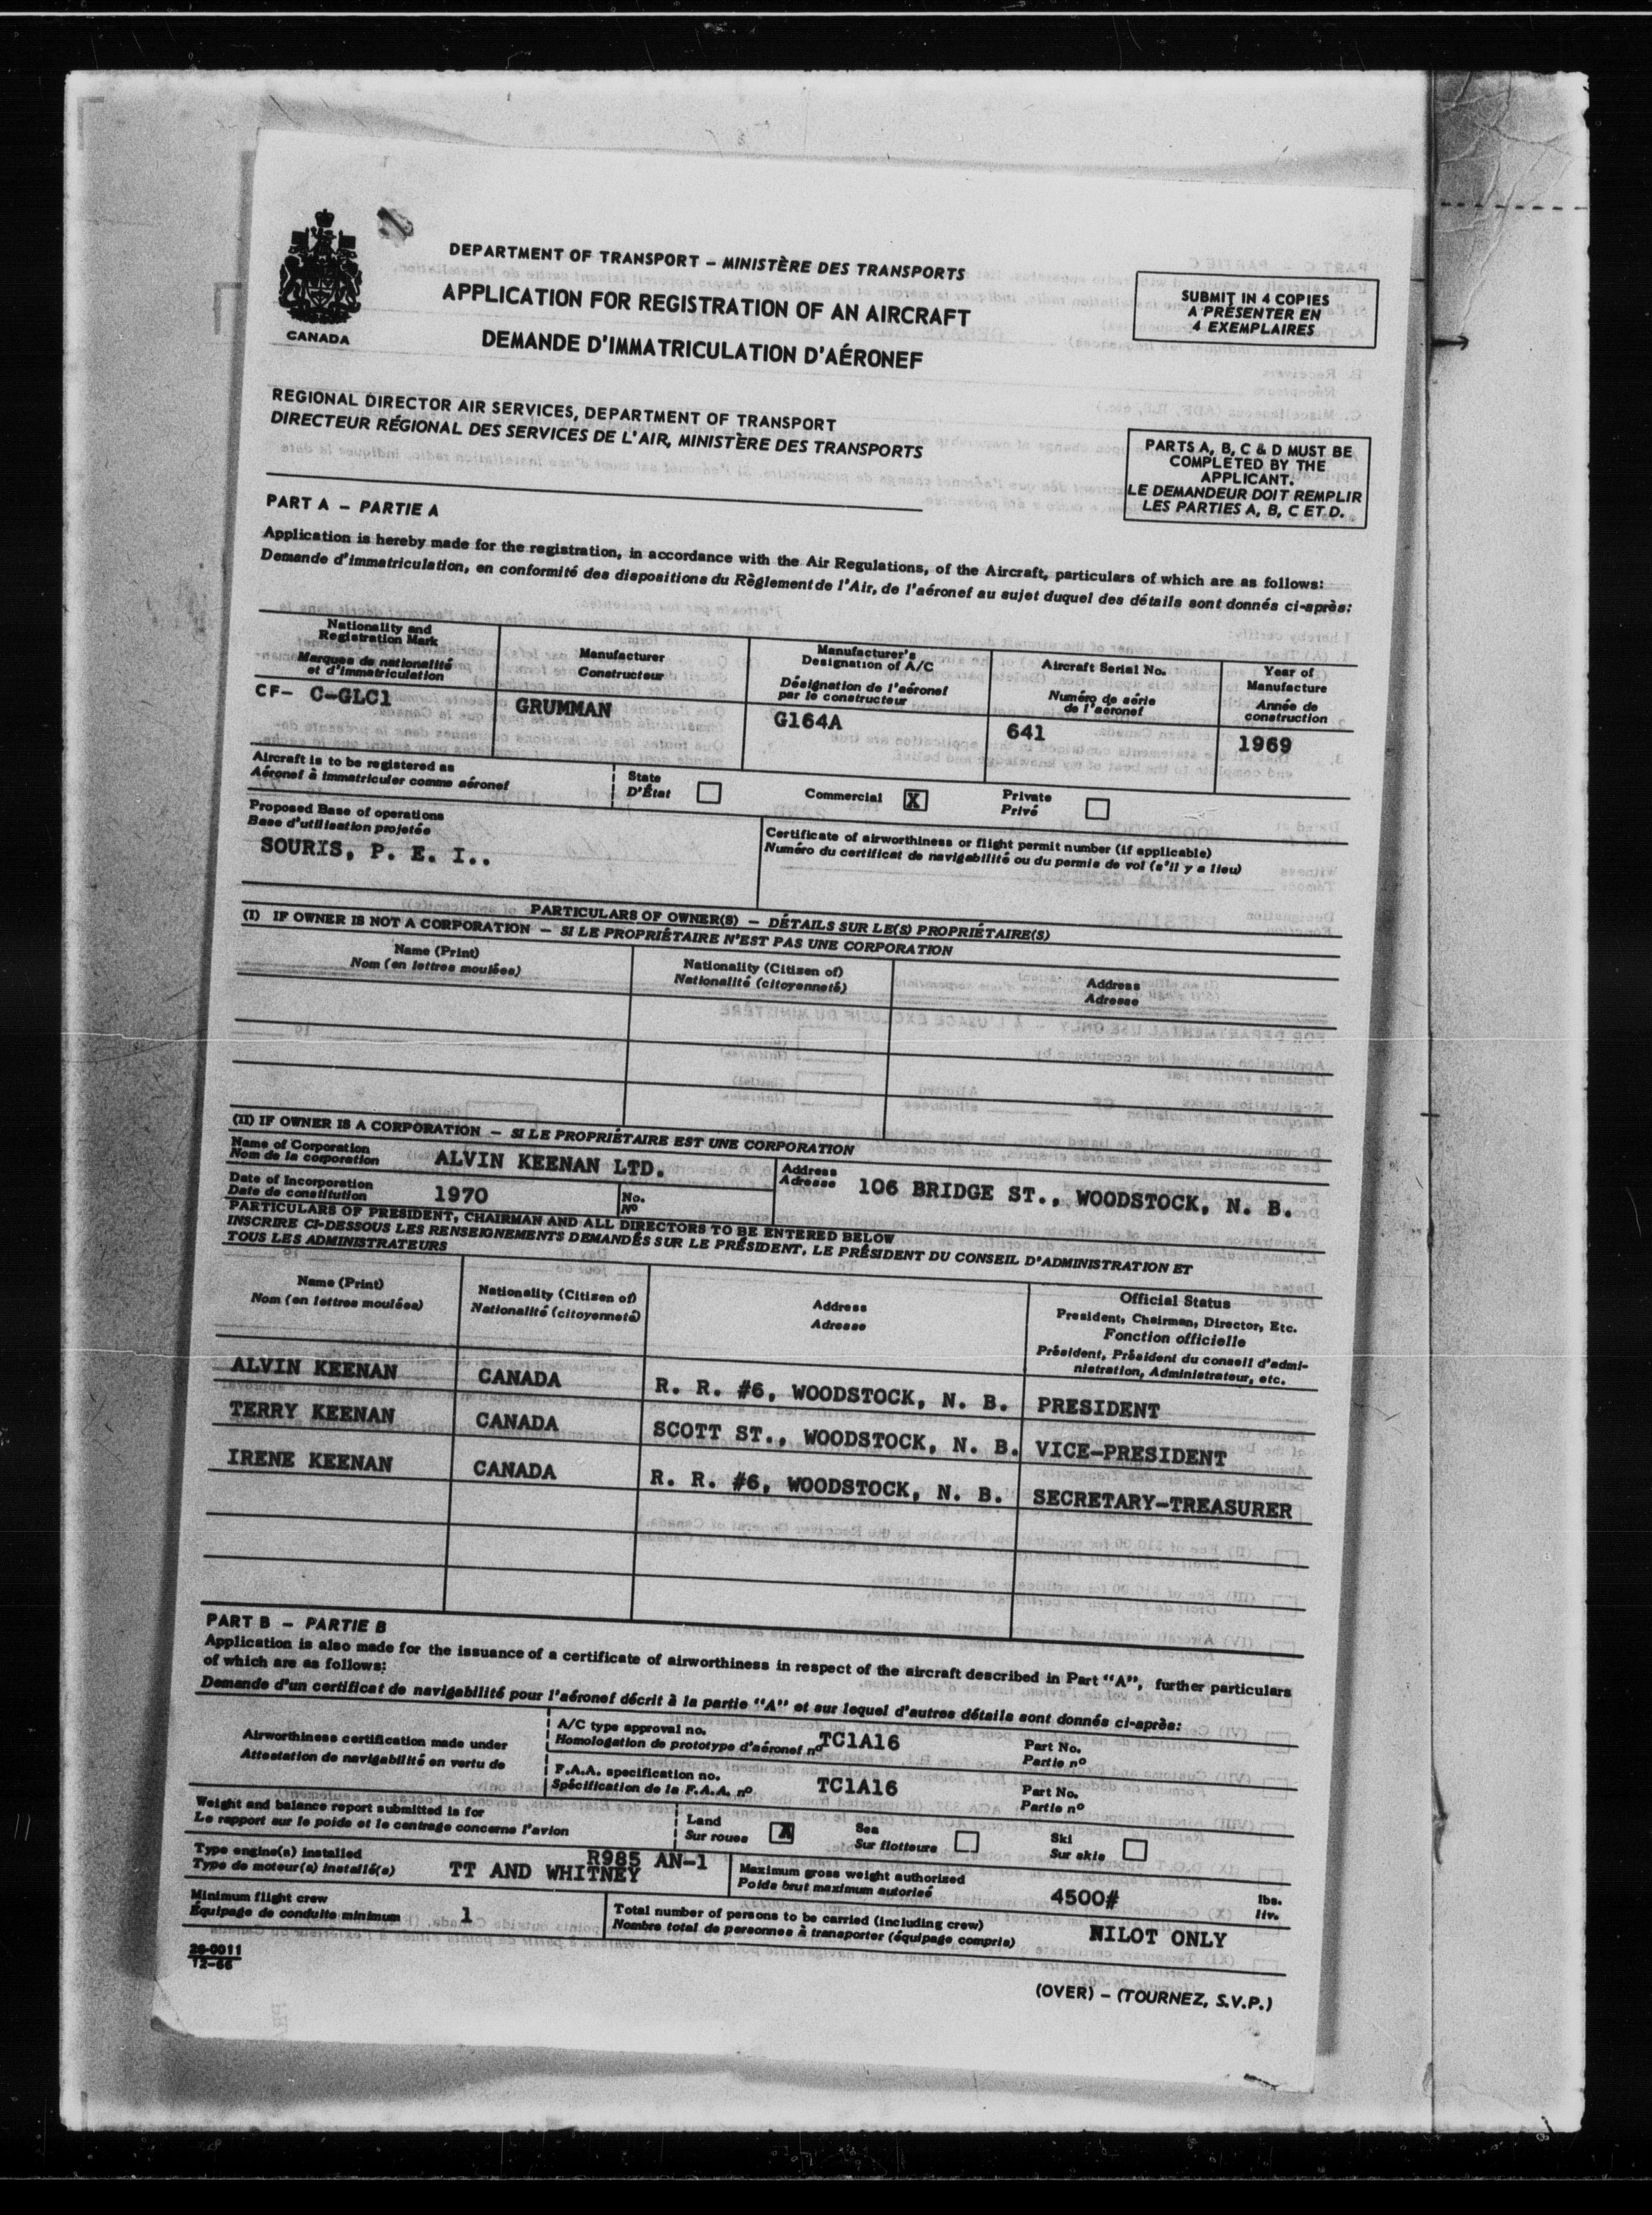 DEPARTMENT OF TRANSPORT – MINISTÈRE DES TRANSPORTS
APPLICATION FOR REGISTRATION OF AN AIRCRAFT
DEMANDE D'IMMATRICULATION D'AÉRONEF
CANADA
SUBMIT IN 4 COPIES
A PRÉSENTER EN
4 EXEMPLAIRES
REGIONAL DIRECTOR AIR SERVICES, DEPARTMENT OF TRANSPORT
DIRECTEUR RÉGIONAL DES SERVICES DE L'AIR, MINISTÈRE DES TRANSPORTS
PARTS A, B, C & D MUST BE
COMPLETED BY THE
APPLICANT.
LE DEMANDEUR DOIT REMPLIR
LES PARTIES A, B, C ET D.
PART A – PARTIE A
Application is hereby made for the registration, in accordance with the Air Regulations, of the Aircraft, particulars of which are as follows:
Demande d'immatriculation, en conformité des dispositions du Règlement de l'Air, de l'aéronef au sujet duquel des détails sont donnés ci-après:
Nationality and
Registration Mark
Marques de nationalité
et d'immatriculation
CF- C-GLC1
Manufacturer
Constructeur
GRUMMAN
Manufacturer's
Designation of A/C
Désignation de l'aéronef
par le constructeur
G164A
Aircraft Serial No.
Numéro de série
de l'aéronef
641
Year of
Manufacture
Année de
construction
1969
Aircraft is to be registered as
Aéronef à immatriculer comme aéronef
State
D'État
Commercial X
Private
Privé
Proposed Base of operations
Base d'utilisation projetée
SOURIS, P. E. I..
Certificate of airworthiness or flight permit number (if applicable)
Numéro du certificat de navigabilité ou du permis de vol (s'il y a lieu)
PARTICULARS OF OWNER(S) – DÉTAILS SUR LE(S) PROPRIÉTAIRE(S)
(I) IF OWNER IS NOT A CORPORATION – SI LE PROPRIÉTAIRE N'EST PAS UNE CORPORATION
Name (Print)
Nom (en lettres moulées)
Nationality (Citizen of)
Nationalité (citoyenneté)
Address
Adresse
(II) IF OWNER IS A CORPORATION – SI LE PROPRIÉTAIRE EST UNE CORPORATION
Name of Corporation
Nom de la corporation
ALVIN KEENAN LTD.
Address
Adresse
106 BRIDGE ST., WOODSTOCK, N. B.
Date of Incorporation
Date de constitution
1970
No.
Nº
PARTICULARS OF PRESIDENT, CHAIRMAN AND ALL DIRECTORS TO BE ENTERED BELOW
INSCRIRE CI-DESSOUS LES RENSEIGNEMENTS DEMANDÉS SUR LE PRÉSIDENT, LE PRÉSIDENT DU CONSEIL D'ADMINISTRATION ET
TOUS LES ADMINISTRATEURS
Name (Print)
Nom (en lettres moulées)
Nationality (Citizen of)
Nationalité (citoyenneté)
Address
Adresse
Official Status
President, Chairman, Director, Etc.
Fonction officielle
Président, Président du conseil d'admi-
nistration, Administrateur, etc.
ALVIN KEENAN CANADA R. R. #6, WOODSTOCK, N. B. PRESIDENT
TERRY KEENAN CANADA SCOTT ST., WOODSTOCK, N. B. VICE-PRESIDENT
IRENE KEENAN CANADA R. R. #6, WOODSTOCK, N. B. SECRETARY-TREASURER
PART B – PARTIE B
Application is also made for the issuance of a certificate of airworthiness in respect of the aircraft described in Part "A", further particulars
of which are as follows:
Demande d'un certificat de navigabilité pour l'aéronef décrit à la partie "A" et sur lequel d'autres détails sont donnés ci-après:
Airworthiness certification made under
Attestation de navigabilité en vertu de
A/C type approval no.
Homologation de prototype d'aéronef nº
TC1A16
Part No.
Partie nº
F.A.A. specification no.
Spécification de la F.A.A. nº
TC1A16
Part No.
Partie nº
Weight and balance report submitted is for
Le rapport sur le poids et le centrage concerne l'avion
Land
Sur roues
X
Sea
Sur flotteurs
Ski
Sur skis
Type engine(s) installed
Type de moteur(s) installé(s)
R985 AN-1
TT AND WHITNEY
Maximum gross weight authorized
Poids brut maximum autorisé
4500#
lbs.
liv.
Minimum flight crew
Équipage de conduite minimum
1
Total number of persons to be carried (including crew)
Nombre total de personnes à transporter (équipage compris)
NILOT ONLY
26-0011
12-66
(OVER) – (TOURNEZ, S.V.P.)